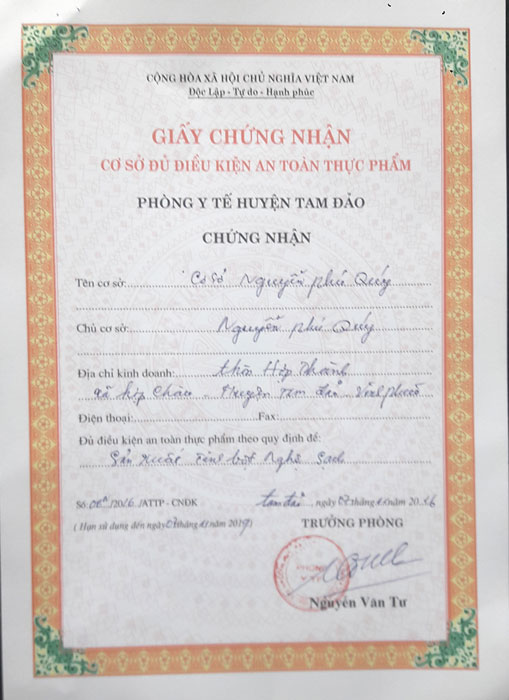 CỘNG HÒA XÃ HỘI CHỦ NGHĨA VIỆT NAM
Độc Lập - Tự do - Hạnh phúc
GIẤY CHỨNG NHẬN
CƠ SỞ ĐỦ ĐIỀU KIỆN AN TOÀN THỰC PHẨM
PHÒNG Y TẾ HUYỆN TAM ĐẢO
CHỨNG NHẬN
Tên cơ sở: Cơ Sở Nguyễn Phú Quý
Chủ cơ sở: Nguyễn Phú Quý
Địa chỉ kinh doanh: thôn Hợp
xã Hợp Châu - Huyện Tam Đảo - Vĩnh Phúc
Điện thoại: Fax:
Đủ điều kiện an toàn thực phẩm theo quy định để:
Sản xuất Tinh bột Nghệ Sạch
Số /2016/ATTP - CNĐK Tam Đảo, ngày 07 tháng năm 2016
( Hạn sử dụng đến ngày 07 tháng năm 2019)
TRƯỞNG PHÒNG
PHÒNG
Y TẾ
Nguyễn Văn Tư